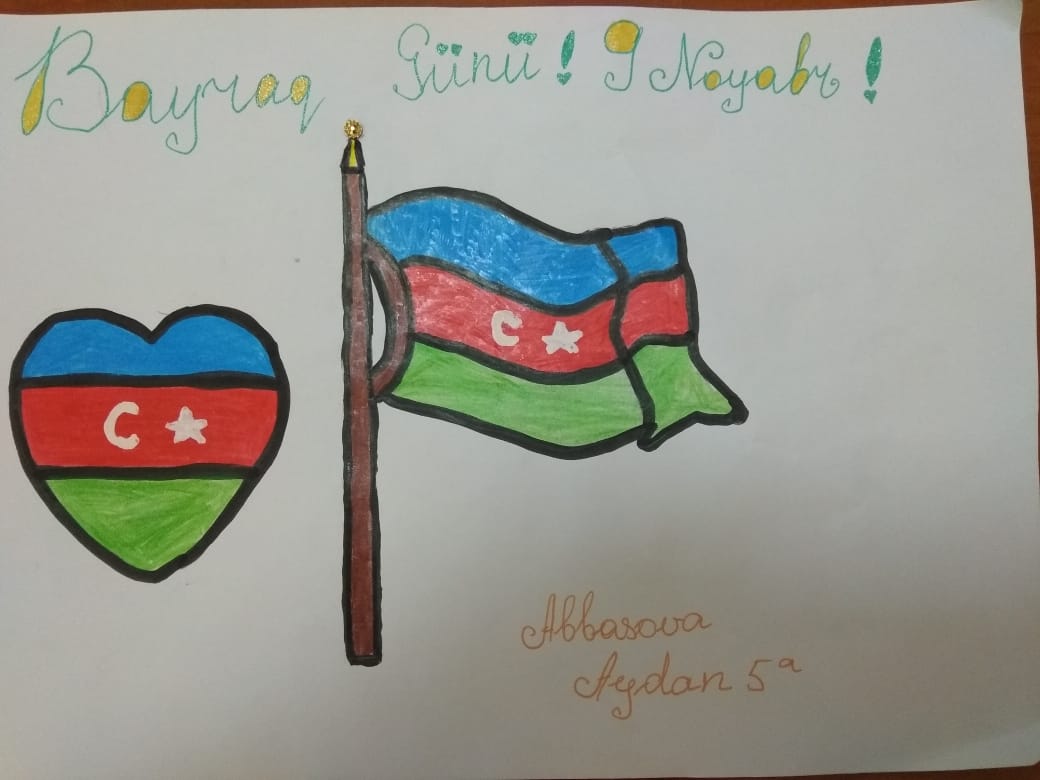 Bayraq Günü! 9 Noyabr!
Abbasova
Aydan 5ᵃ